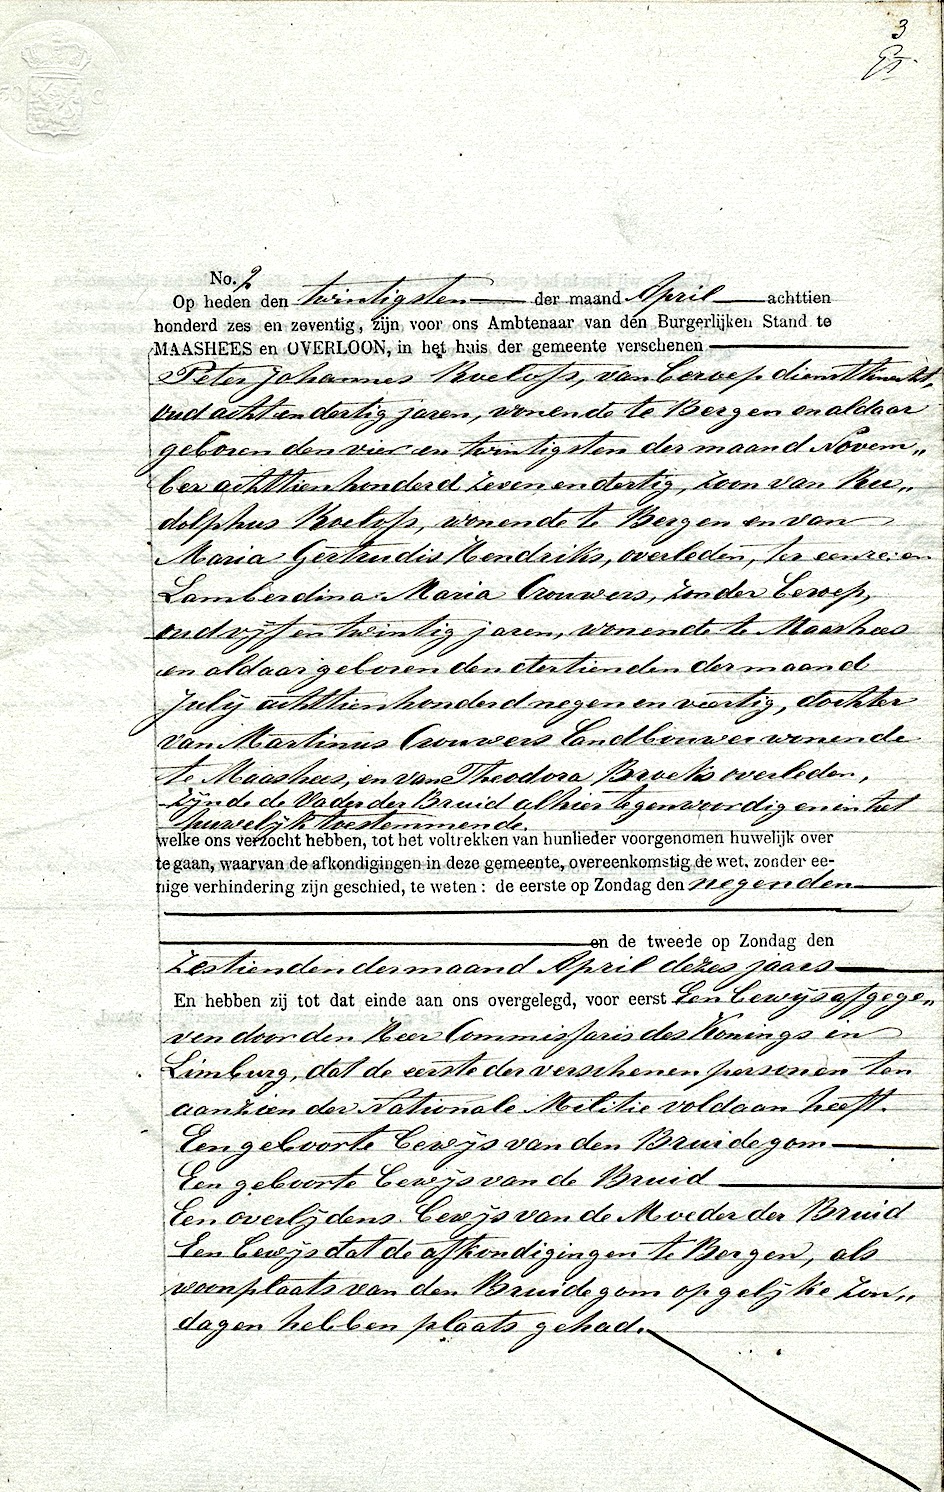 3
No. 2
Op heden den twintigsten der maand April achttien
honderd zes en zeventig, zijn voor ons Ambtenaar van den Burgerlijken Stand te
MAASHEES en OVERLOON, in het huis der gemeente verschenen
Peter Johannes Roelofs, van beroep dienstknecht,
oud acht en dertig jaren, wonende te Bergen en aldaar
geboren den vier en twintigsten der maand Novem„
ber achttienhonderd zeven en dertig, zoon van Ru„
dolphus Roelofs, wonende te Bergen en van
Maria Gertrudis Hendriks, overleden, ter eenre: en
Lamberdina Maria Crouwers, zonder beroep,
oud vijf en twintig jaren, wonende te Maashees
en aldaar geboren den dertienden der maand
Julij achttienhonderd negen en veertig, dochter
van Martinus Crouwers Landbouwer wonende
te Maashees, en van Theodora Broeks overleden,
Zijnde de Vader der Bruid alhier tegenwoordig en in het
huwelijk toestemmende.
welke ons verzocht hebben, tot het voltrekken van hunlieder voorgenomen huwelijk over
te gaan, waarvan de afkondigingen in deze gemeente, overeenkomstig de wet, zonder ee-
nige verhindering zijn geschied, te weten: de eerste op Zondag den negenden
en de tweede op Zondag den
Zestienden der maand April dezes jaars
En hebben zij tot dat einde aan ons overgelegd, voor eerst Een bewijs afgege„
ven door den Heer Commissaris des Konings in
Limburg, dat de eerste der verschenen personen ten
aanzien der Nationale Militie voldaan heeft.
Een geboorte bewijs van den Bruidegom
Een geboorte bewijs van de Bruid
Een overlijdens bewijs van de Moeder der Bruid
Een bewijs dat de afkondigingen te Bergen, als
woonplaats van den Bruidegom op gelijke Zon„
dagen hebben plaats gehad.